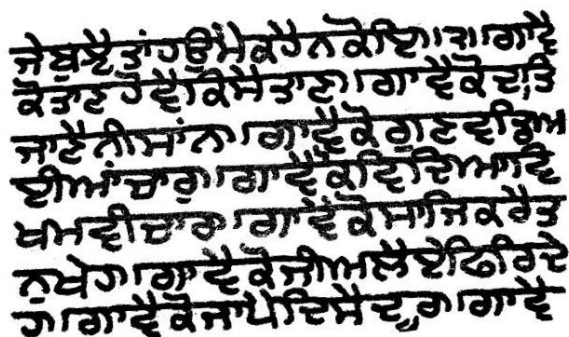 ਜੇਬੁਝੈਤਾਂਹਉਂਮੈਕਹੈਨਕੋਇ॥੨॥ਗਾਵੈ
ਕੋਤਾਣਹੋਵੈਕਿਸੈਤਾਣ॥ਗਾਵੈਕੋਦਾਤਿ
ਜਾਣੈਨੀਸਾਂਨ॥ਗਾਵੈਕੋਗੁਣਵਡਿਆ
ਈਆਂਚਾਰ॥ਗਾਵੈਕੋਵਿਦਿਆਵਿ
ਖਮਵੀਚਾਰ॥ਗਾਵੈਕੋਸਾਜਿਕਰੈਤ
ਨੁਖੇਹ॥ਗਾਵੈਕੋਜੀਅਲੈਫਿਰਿਦੇ
ਹ॥ਗਾਵੈਕੋਜਾਪੈਦਿਸੈਦੂਰ॥ਗਾਵੈ